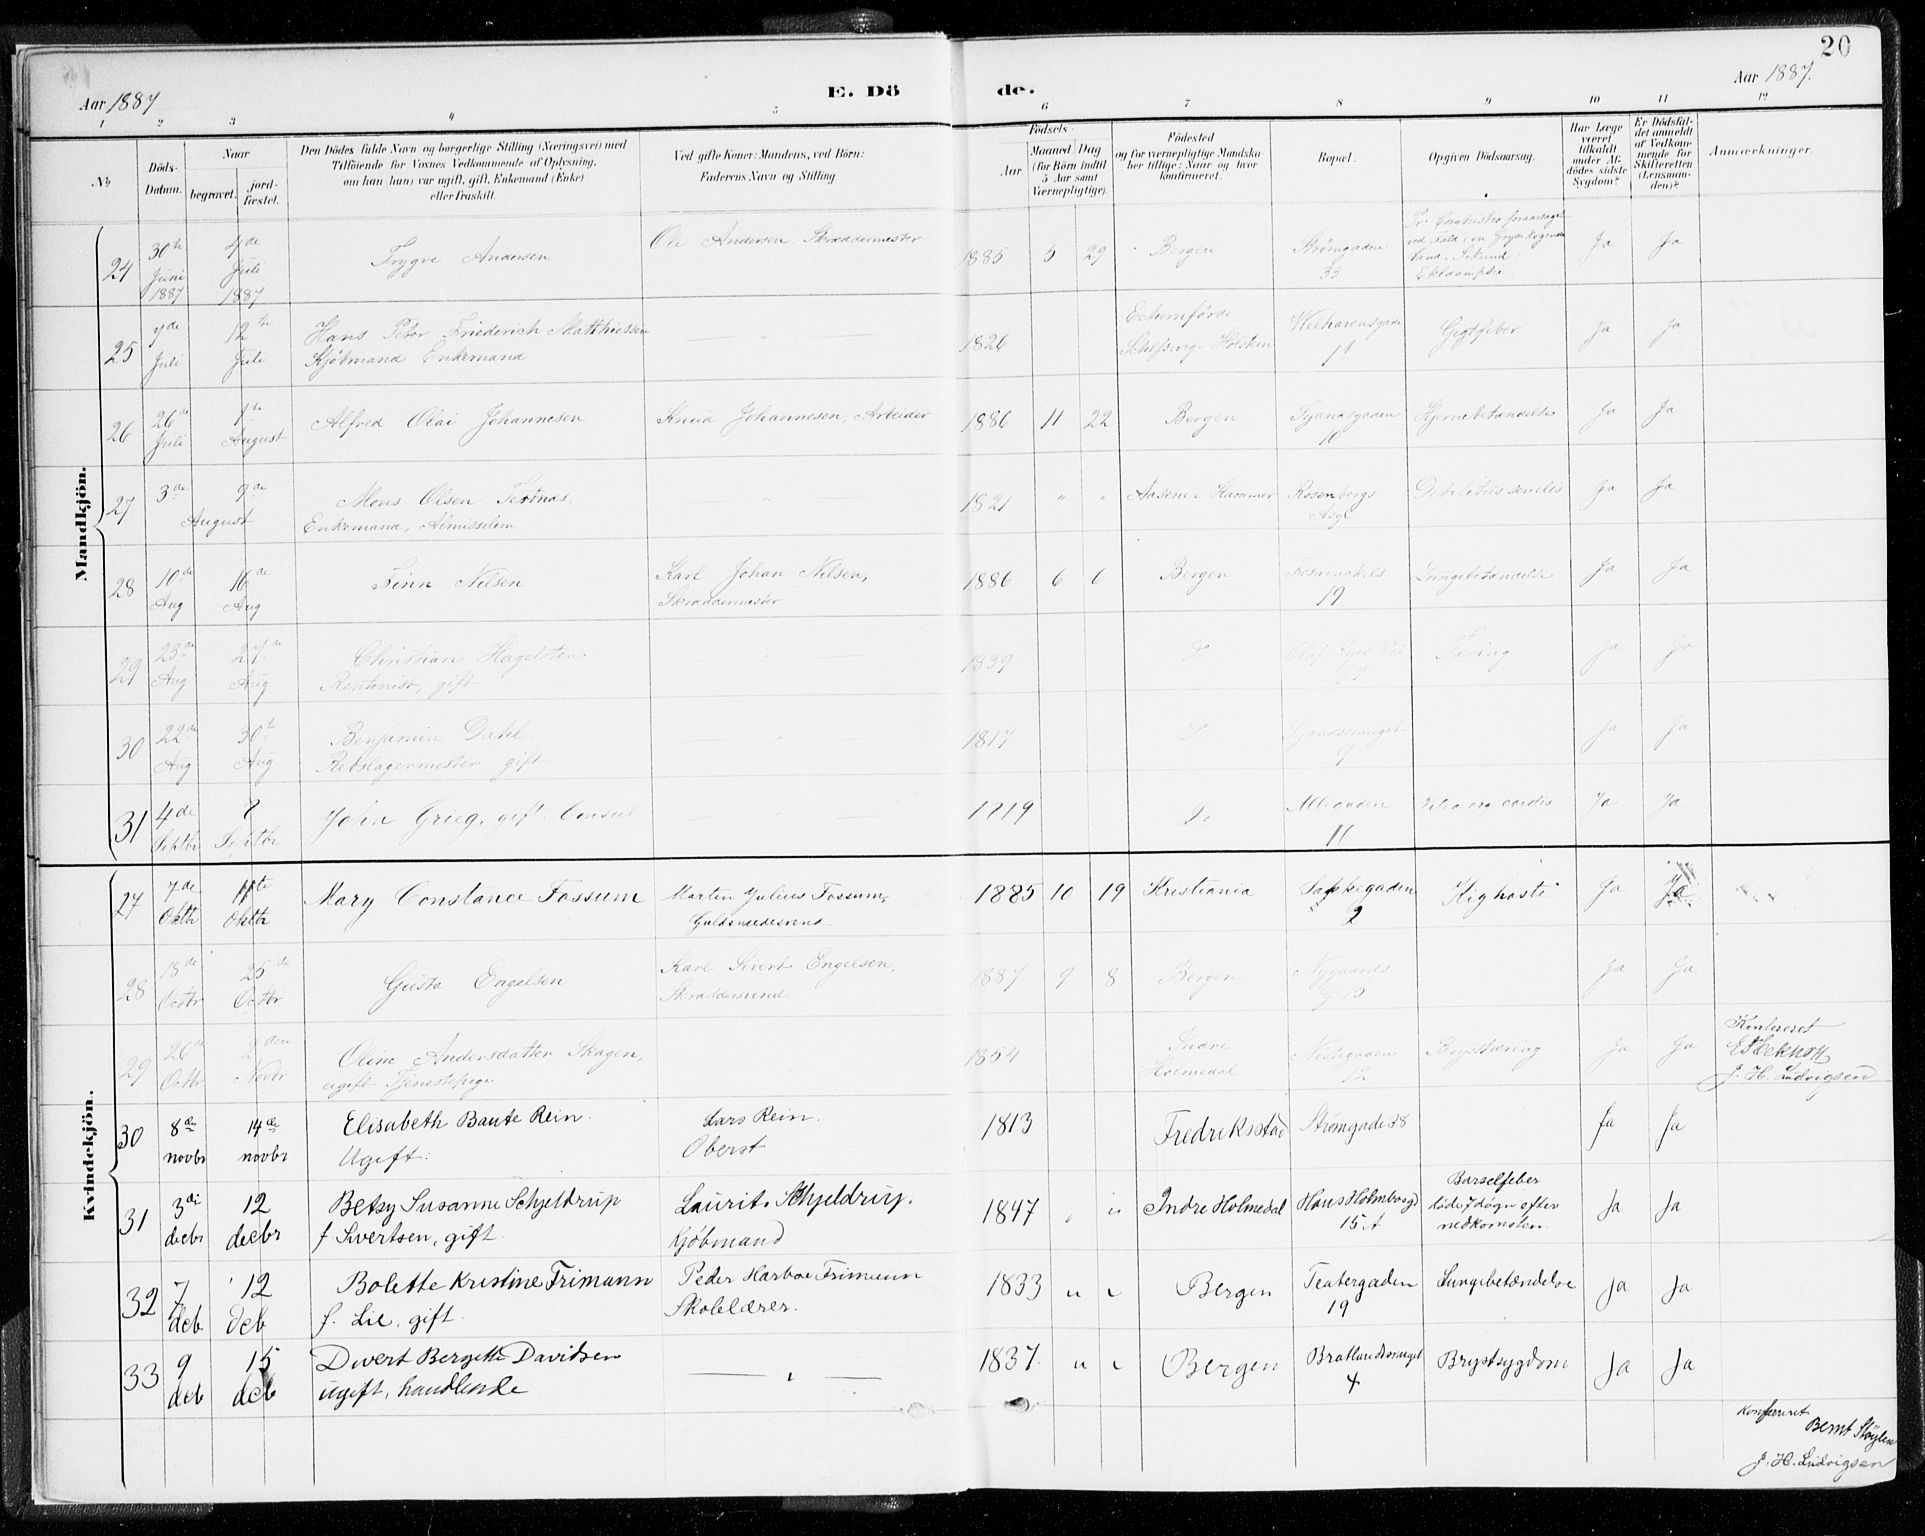 20
Aar 1887
E. Dö
de.
Aar 1887.
1 2 3 4 5 6 7 8 9 10 11 12
No
Döds-Datum.
Naar
begravet.
jord-fæstet.
Den Dödes fulde Navn og borgerlige Stilling (Næringsvei) med
Tilföiende for Voxnes Vedkommende af Oplysning,
om han (hun) var ugift, gift, Enkemand (Enke)
eller fraskilt.
Ved gifte Koner: Mandens, ved Börn:
Faderens Navn og Stilling.
Födsels-
Aar
Maaned
Dag
(for Börn indtil
5 Aar samt
Værnepligtige).
Födested
og for værnepligtige Mandska-
ber tillige: Naar og hvor
konfirmeret.
Bopæl.
Opgiven Dödsaarsag.
Har Læge
været
tilkaldt
under Af-
dödes sidste
Sygdom?
Er Dödsfal-
det anmeldt
af Vedkom-
mende for
Skifteretten
(Lensman-
den)?
Anmærkninger.
Mandkjön.
24 30te Juni 1887 4de Juli 1887 Trygve Andersen Ole Andersen. Skræddermester 1885 5 29 Bergen Strömgaden 33 Ja Ja
25 7de Juli 12te Juli Hans Peter Friederich Matthiessen
Kjöbmand Enkemand 1826 Echernförde
Schleswig-Holsten Welhavensgade Gigtfeber Ja Ja
26 26de Juli 1te August Alfred Olai Johannesen Knud Johannesen, Arbeider 1886 11 22 Bergen 10 Hjernebetændelse Ja Ja
27 3de 9de August Mons Olsen
Enkemand, Almisselem 1821 " " Aasene i Hammer Rosenbergs Asyl Debilitas senilis Ja Ja
28 10de Aug 16de Aug Finn Nilsen Karl Johan Nilsen,
Skræddermester 1886 6 6 Bergen 19 Lungebetændelse Ja Ja
29 23de Aug 27de Aug Christian Hagelsten
Rentenist, gift 1839 Do Olaf Ryes Vei Tæring Ja Ja
30 22de Aug 30te Aug Benjamin Dahl
Rebslagermester, gift 1817 Do 9 Ja Ja
31 4de Septbr 8 Septbr John Grieg, gift. Consul 1819 Do Alleeaden 11 Vitia org cordis Ja Ja
Kvindekjön.
27 7de Oktb 11te Oktb Mary Constance Fossum Marten Julius Fossum,
Guldsmedesvend 1885 10 19 Kristiania 2 Kighoste Ja Ja
28 18de Octbr 25de Octbr Gusta Engelsen Karl Sivert Engelsen,
Skræddersvend 1887 9 8 Bergen Nygaards G. 13 Ja Ja
29 26de Octbr 2den Novbr Oline Andersdatter Skagen,
ugift Tjenestepige 1854 Indre
Holmedal Nöstegaden 12 Brysttæring Ja Ja
Konfereret
E. F. Eckhoff
J. H. Ludvigsen
30 8de novbr 14de novbr Elisabeth Baute Rein.
Ugift. Lars Rein.
Oberst 1813 Fredriksstad Strömgade 38 Ja Ja
31 3di decbr 12 decbr Betsy Susanne Schjeldrup
f. Sivertsen, gift Laurits Schjeldrup.
Kjöbmand 1847 " " Indre Holmedal Hans Holmbosgd
15 A Barselfeber
döde 7 dögn efter
nedkomsten. Ja Ja
32 7 deb. 12 deb Bolette Kristine Frimann
f. Lie, gift. Peder Harboe Frimann
Skolelærer. 1833 " " Bergen Teatergaden
19 Lungebetændelse Ja Ja
33 9 deb 15 deb Divert Bergette Davidsen
ugift, handlende 1837. " " Bergen Bratlandsmuget
4 Brystsygdom Ja Ja
Konfereret
Bernt Stöylen
J. H. Ludvigsen